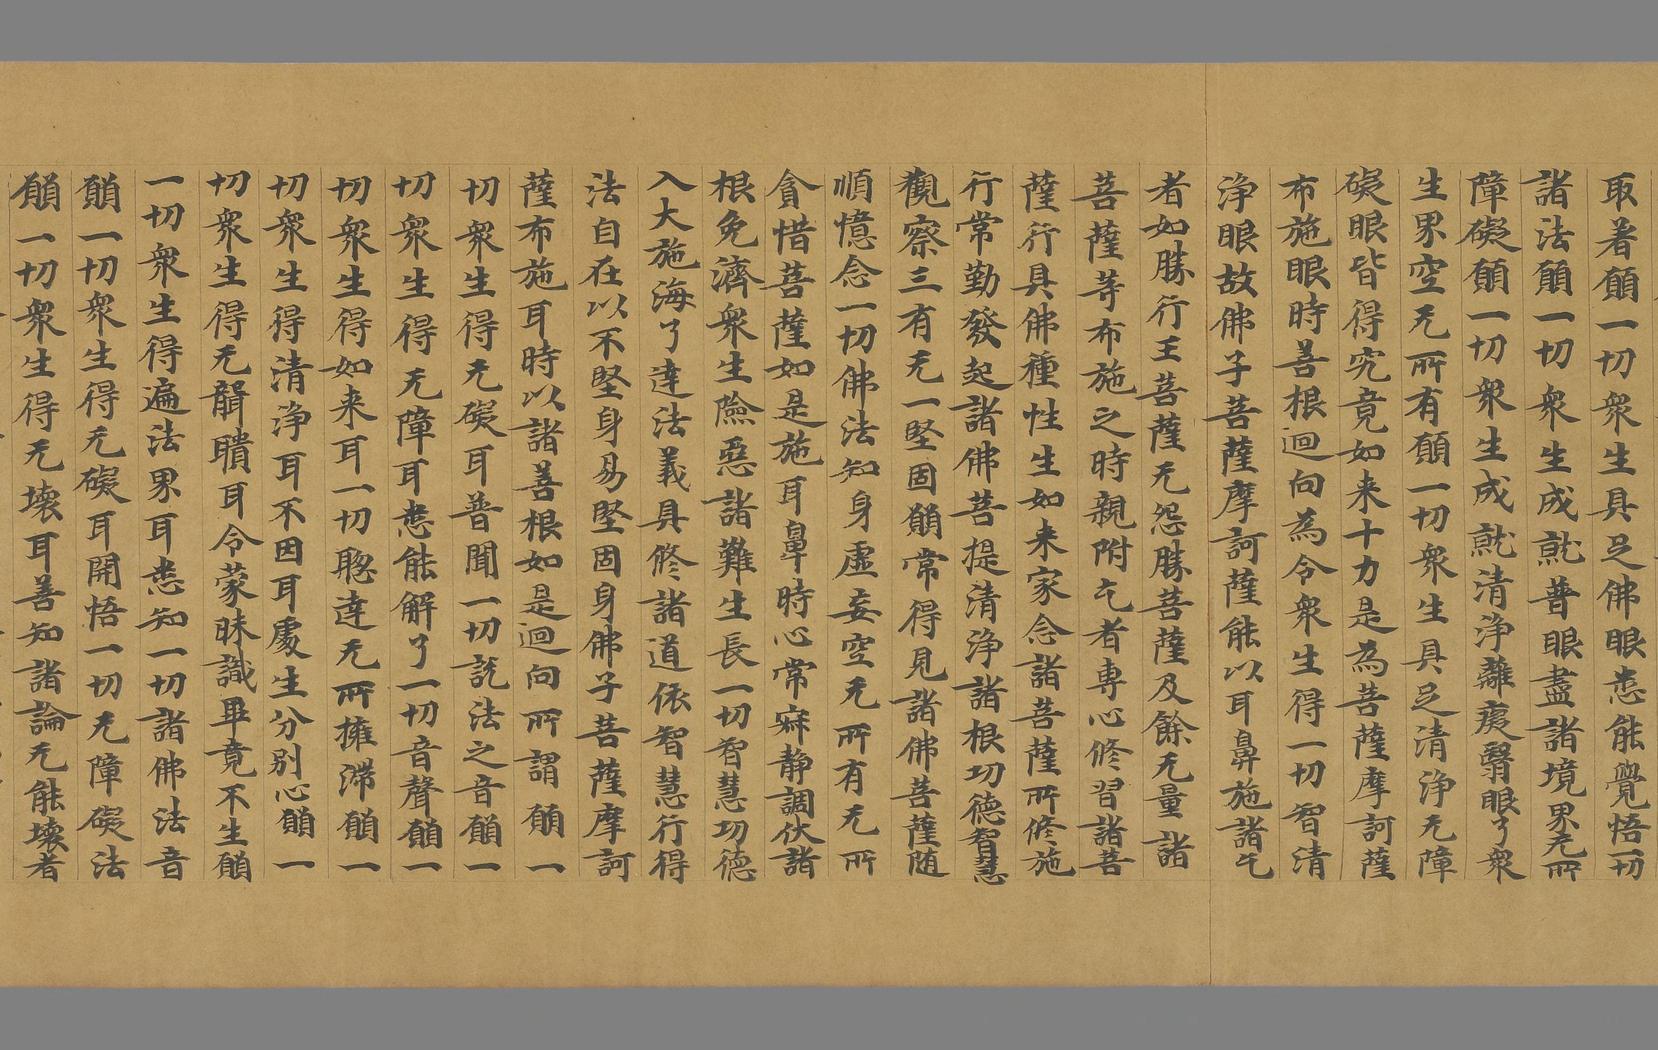 取著願一切衆生具足佛眼悉能覺悟一切
諸法願一切衆生成就普眼盡諸境界无所
障礙願一切衆生成就清淨離癡翳眼了衆
生界空无所有願一切衆生具足清淨无障
礙眼皆得究竟如来十力是為菩薩摩訶薩
布施眼時善根迴向為令衆生得一切智清
淨眼故佛子菩薩摩訶薩能以耳鼻施諸乞
者如勝行王菩薩无怨勝菩薩及餘无量諸
菩薩等布施之時親附乞者專心修習諸菩
薩行具佛種性生如来家念諸菩薩所修施
行常勤發起諸佛菩提清淨諸根功德智慧
觀察三有无一堅固願常得見諸佛菩薩随
順憶念一切佛法知身虛妄空无所有无所
貪惜菩薩如是施耳鼻時心常寂静調伏諸
根免濟衆生險惡諸難生長一切智慧功德
入大施海了達法義具修諸道依智慧行得
法自在以不堅身易堅固身佛子菩薩摩訶
薩布施耳時以諸善根如是迴向所謂願一
切衆生得无礙耳普聞一切說法之音願一
切衆生得无障耳悉能解了一切音聲願一
切衆生得如来耳一切聡達无所擁滞願一
切衆生得清淨耳不因耳處生分别心願一
切衆生得无聾聵耳令蒙昧識畢竟不生願
一切衆生得遍法界耳悉知一切諸佛法音
願一切衆生得无礙耳開悟一切无障礙法
願一切衆生得无壞耳善知諸論无能壞者